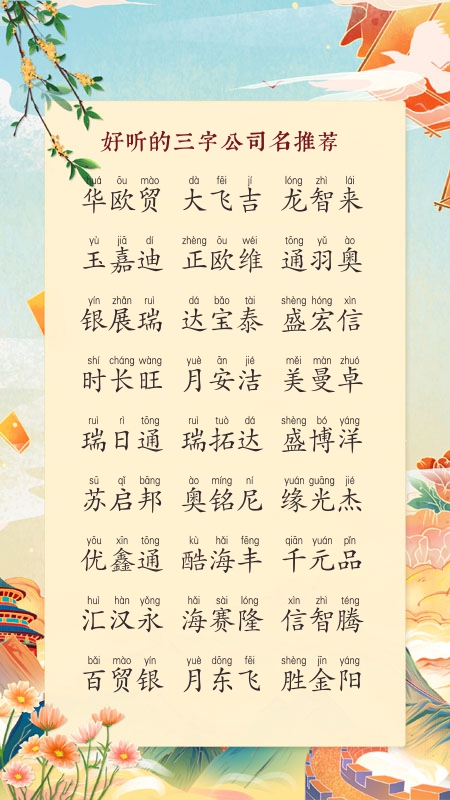 好听的三字公司名推荐
huá ōu mào dà fēi jí lóng zhì lái
华欧贸 大飞吉 龙智来
yù jiā dí zhèng ōu wéi tōng yǔ ào
玉嘉迪 正欧维 通羽奥
yín zhǎn ruì dá bǎo tài shèng hóng xìn
银展瑞 达宝泰 盛宏信
shí cháng wàng yuè ān jié měi màn zhuó
时长旺 月安洁 美曼卓
ruì rì tōng ruì tuò dá shèng bó yáng
瑞日通 瑞拓达 盛博洋
sū qǐ bāng ào míng ní yuán guāng jié
苏启邦 奥铭尼 缘光杰
yōu xīn tōng kù hǎi fēng qiān yuán pǐn
优鑫通 酷海丰 千元品
huì hàn yǒng hǎi sài lóng xìn zhì téng
汇汉永 海赛隆 信智腾
bǎi mào yín yuè dōng fēi shèng jīn yáng
百贸银 月东飞 胜金阳